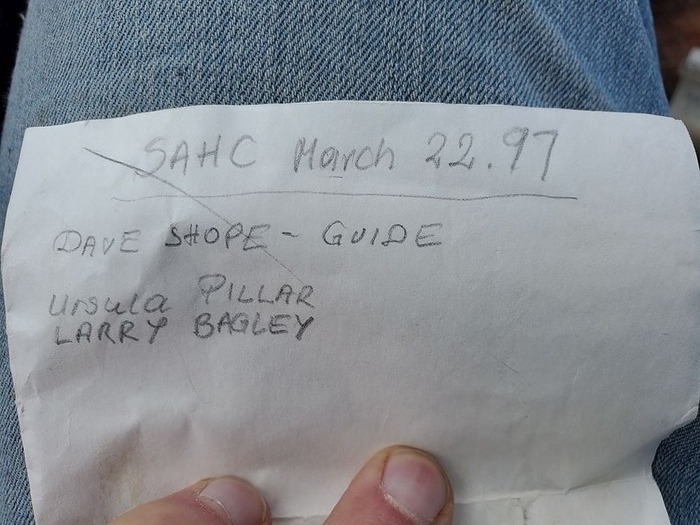 SAHC March 22.97
DAVE SHOPE - GUIDE
Ursula PILLAR
LARRY BAGLEY